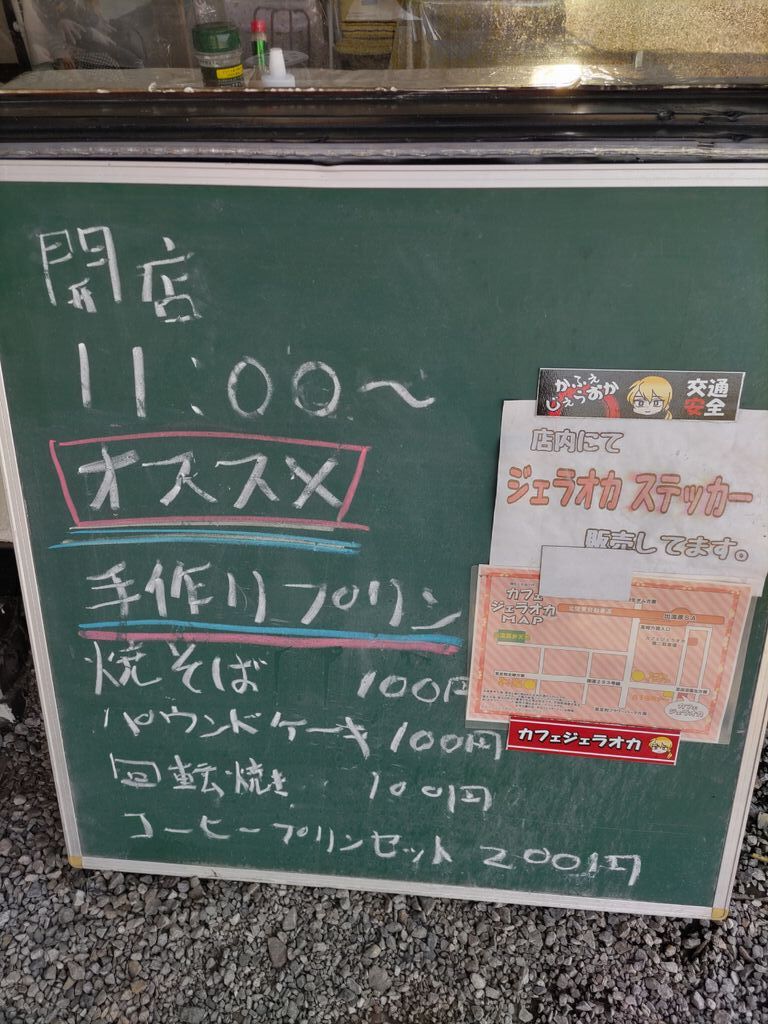 開店
11:00〜
オススメ
手作りプリン
焼そば 100円
パウンドケーキ 100円
回転焼き 100円
コーヒープリンセット 200円
かふぇ
じぇらおか
交通
安全
店内にて
ジェラオカ ステッカー
販売してます。
カフェ
ジェラオカ
MAP
カフェジェラオカ